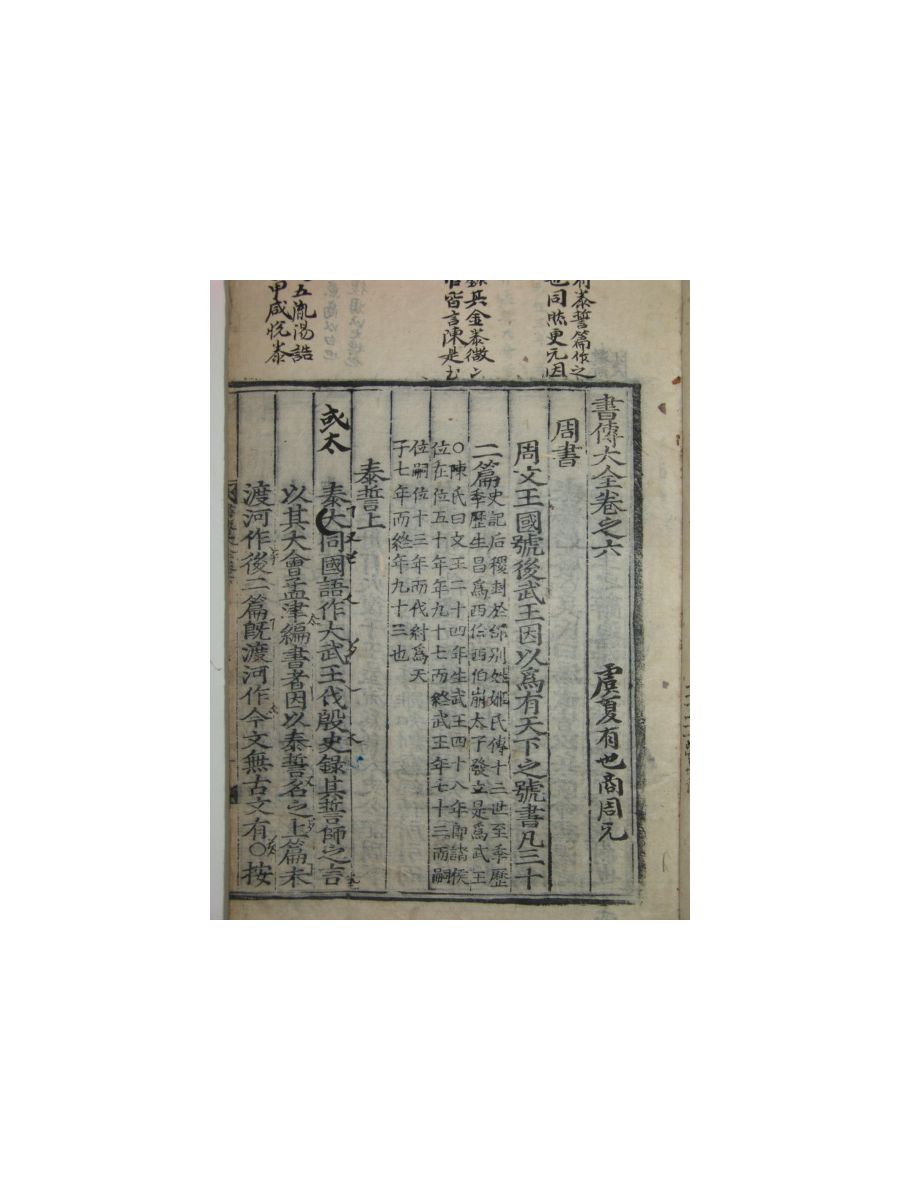 書傳大全卷之六 虞夏有也商周元
周書
周文王國號後武王因以爲有天下之號書凡三十
二篇史記后稷封於邰别姓姬氏傳十二世至季歷
季歷生昌爲西伯西伯崩太子發立是爲武王
○陳氏曰文王二十四年生武王四十八年卽諸侯
位在位五十年年九十七而終武王年七十三而嗣
位嗣位十三年而代紂爲天
子七年而終年九十三也
泰誓上
或太
泰大同國語作大武王伐殷史錄其誓師之言
以其大會孟津編書者因以泰誓名之上篇未
渡河作後二篇旣渡河作今文無古文有○按
泰誓篇作之
也同然更元因
其金泰徵
皆言陳是
五胤湯誥
甲咸悅泰